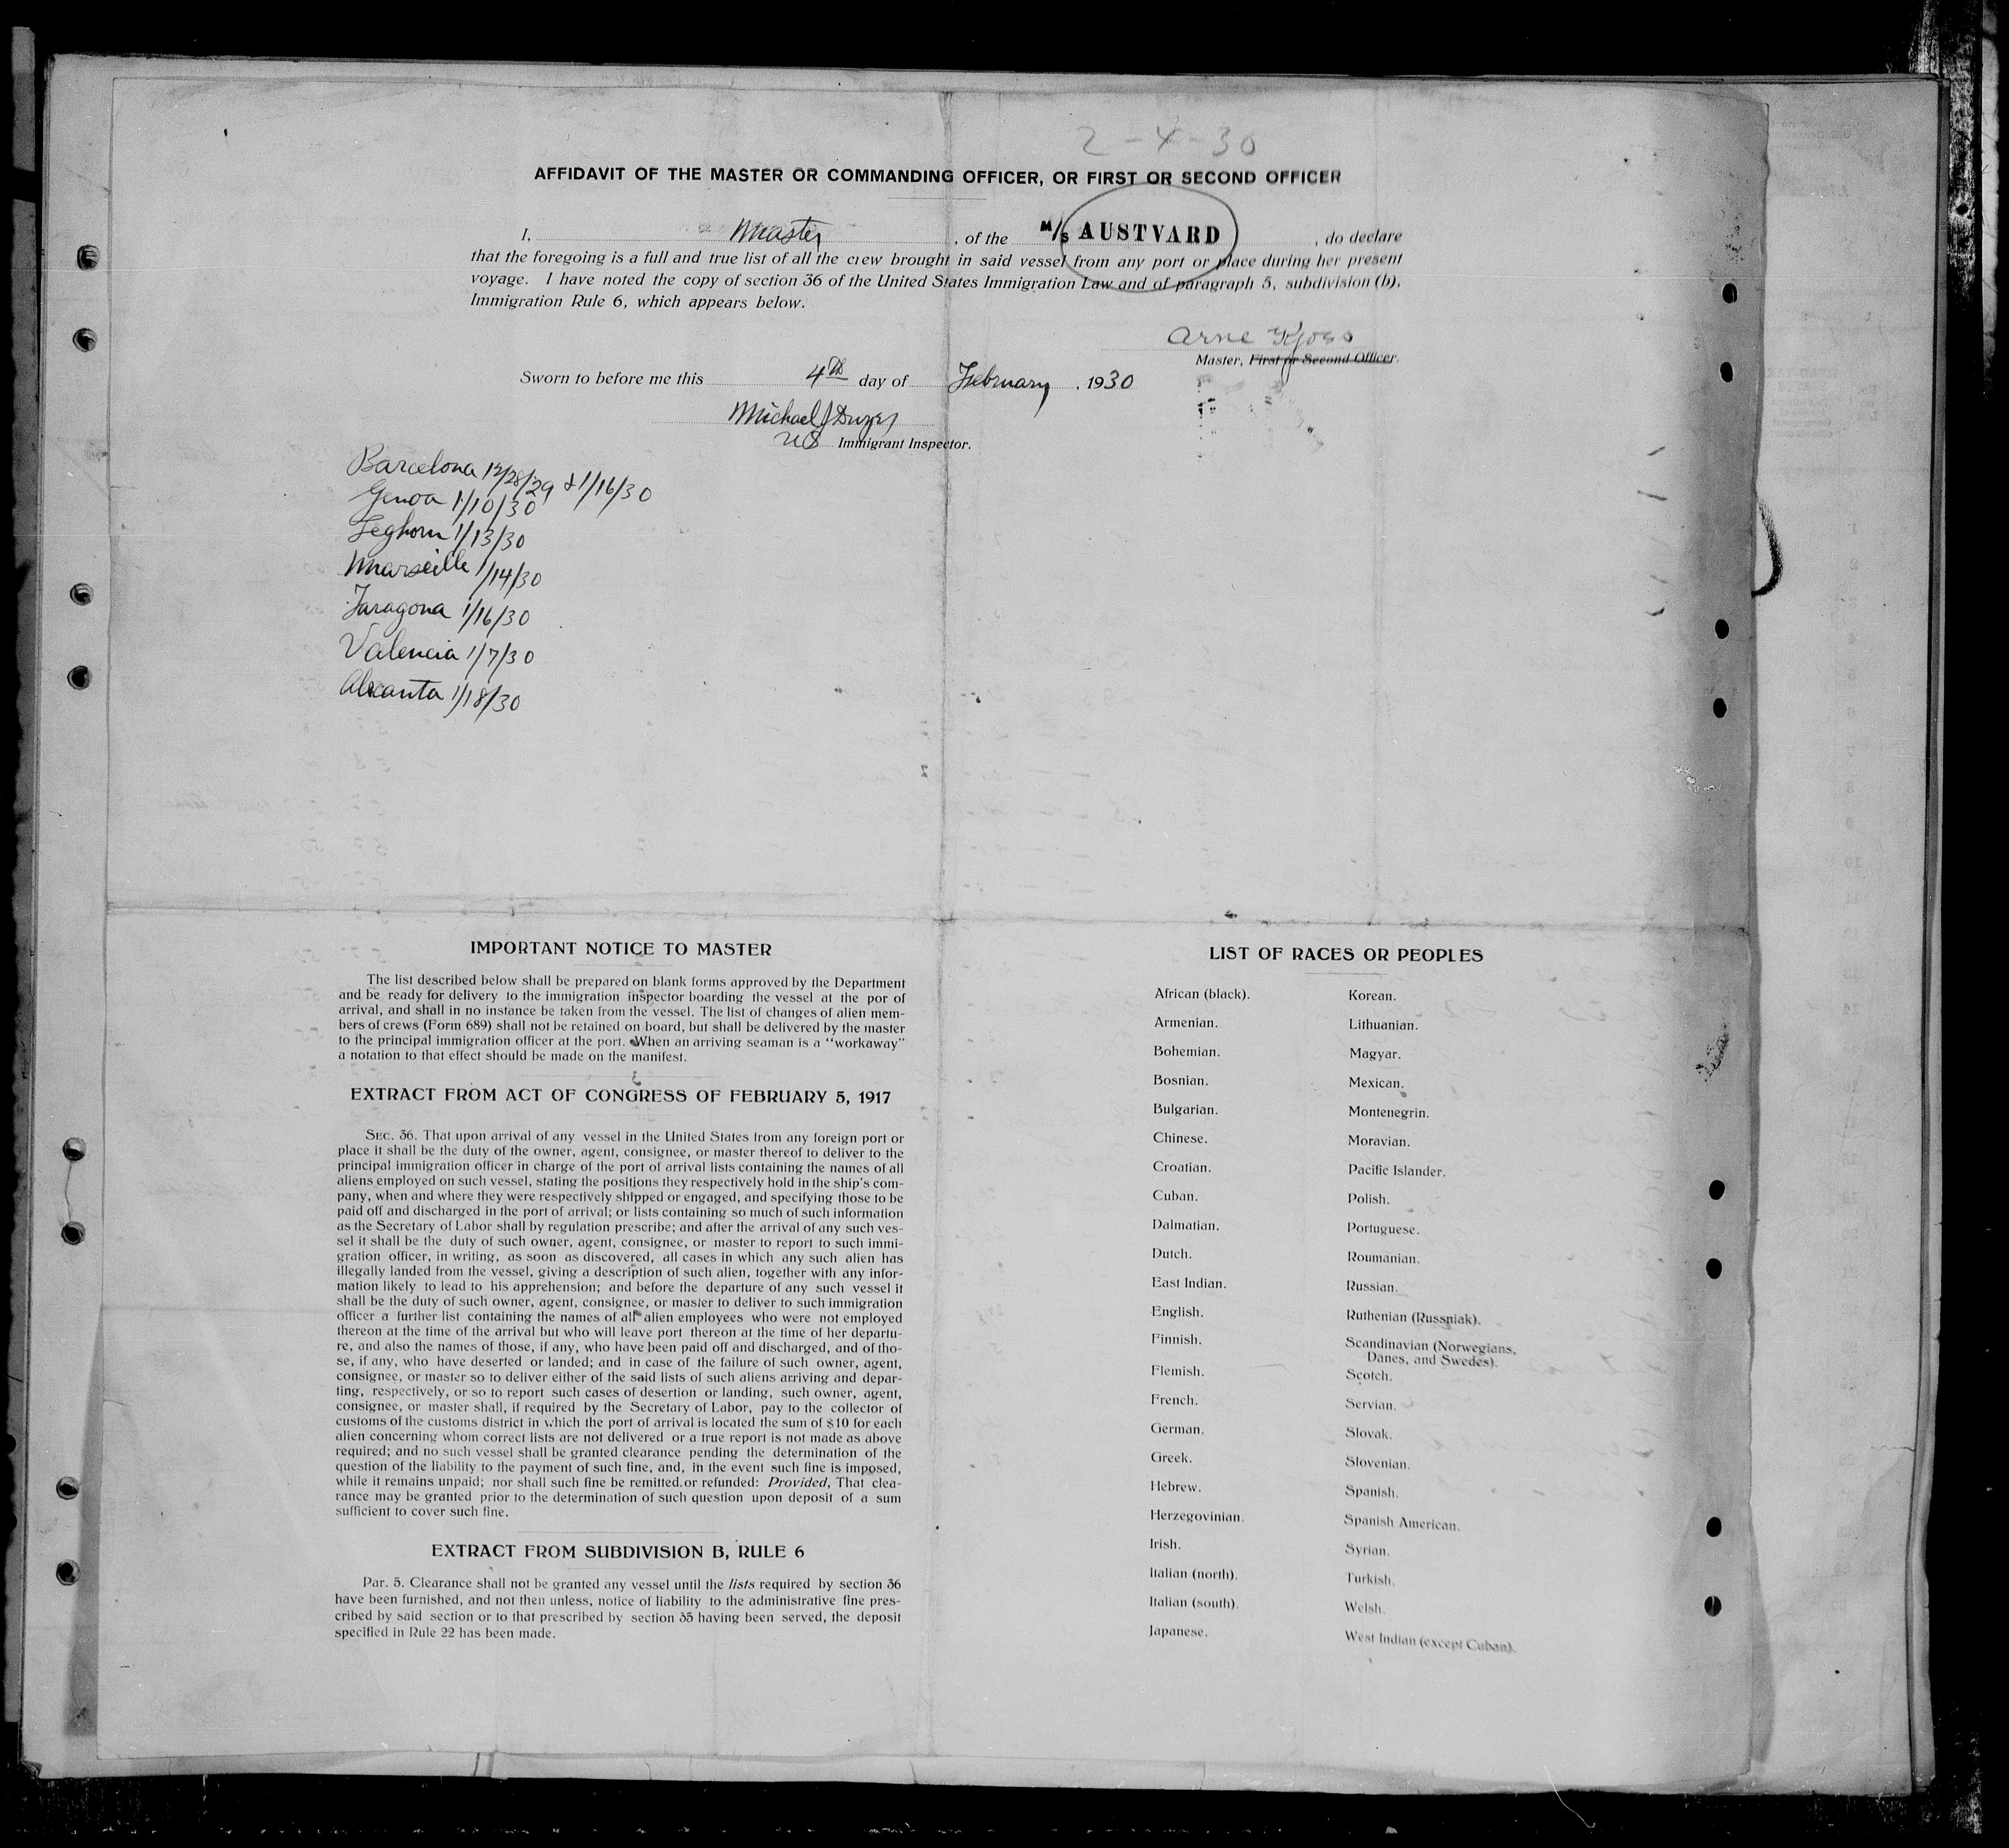 2-4-30
AFFIDAVIT OF THE MASTER OR COMMANDING OFFICER, OR FIRST OR SECOND OFFICER
I, Master, of the M/S AUSTVARD, do declare
that the foregoing is a full and true list of all the crew brought in said vessel from any port or place during her present
voyage. I have noted the copy of section 36 of the United States Immigration Law and of paragraph 5, subdivision (b),
Immigration Rule 6, which appears below.
Arne
Master, First or Second Officer.
Sworn to before me this 4th day of February, 1930
Michael J
US Immigrant Inspector.
Barcelona 12/28/29 & 1/16/30
Genoa 1/10/30
Leghorn 1/13/30
Marseille 1/14/30
Taragona 1/16/30
Valencia 1/7/30
Alicanta 1/18/30
IMPORTANT NOTICE TO MASTER
The list described below shall be prepared on blank forms approved by the Department
and be ready for delivery to the immigration inspector boarding the vessel at the por of
arrival, and shall in no instance be taken from the vessel. The list of changes of alien mem-
bers of crews (Form 689) shall not be retained on board, but shall be delivered by the master
to the principal immigration officer at the port. When an arriving seaman is a "workaway"
a notation to that effect should be made on the manifest.
EXTRACT FROM ACT OF CONGRESS OF FEBRUARY 5, 1917
SEC. 36. That upon arrival of any vessel in the United States from any foreign port or
place it shall be the duty of the owner, agent, consignee, or master thereof to deliver to the
principal immigration officer in charge of the port of arrival lists containing the names of all
aliens employed on such vessel, stating the positions they respectively hold in the ship's com-
pany, when and where they were respectively shipped or engaged, and specifying those to be
paid off and discharged in the port of arrival; or lists containing so much of such information
as the Secretary of Labor shall by regulation prescribe; and after the arrival of any such ves-
sel it shall be the duty of such owner, agent, consignee, or master to report to such immi-
gration officer, in writing, as soon as discovered, all cases in which any such alien has
illegally landed from the vessel, giving a description of such alien, together with any infor-
mation likely to lead to his apprehension; and before the departure of any such vessel it
shall be the duty of such owner, agent, consignee, or master to deliver to such immigration
officer a further list containing the names of all alien employees who were not employed
thereon at the time of the arrival but who will leave port thereon at the time of her departu-
re, and also the names of those, if any, who have been paid off and discharged, and of tho-
se, if any, who have deserted or landed; and in case of the failure of such owner, agent,
consignee, or master so to deliver either of the said lists of such aliens arriving and depar-
ting, respectively, or so to report such cases of desertion or landing, such owner, agent,
consignee, or master shall, if required by the Secretary of Labor, pay to the collector of
customs of the customs district in which the port of arrival is located the sum of $10 for each
alien concerning whom correct lists are not delivered or a true report is not made as above
required; and no such vessel shall be granted clearance pending the determination of the
question of the liability to the payment of such fine, and, in the event such fine is imposed,
while it remains unpaid; nor shall such fine be remitted or refunded: Provided, That clea-
rance may be granted prior to the determination of such question upon deposit of a sum
sufficient to cover such fine.
EXTRACT FROM SUBDIVISION B, RULE 6
Par. 5. Clearance shall not be granted any vessel until the lists required by section 36
have been furnished, and not then unless, notice of liability to the administrative fine pres-
cribed by said section or to that prescribed by section 35 having been served, the deposit
specified in Rule 22 has been made.
LIST OF RACES OR PEOPLES
African (black).
Armenian.
Bohemian.
Bosnian.
Bulgarian.
Chinese.
Croatian.
Cuban.
Dalmatian.
Dutch.
East Indian.
English.
Finnish.
Flemish.
French.
German.
Greek.
Hebrew.
Herzegovinian.
Irish.
Italian (north).
Italian (south).
Japanese.
Korean.
Lithuanian.
Magyar.
Mexican.
Montenegrin.
Moravian.
Pacific Islander.
Polish.
Portuguese.
Roumanian.
Russian.
Ruthenian (Russniak).
Scandinavian (Norwegians,
Danes, and Swedes).
Scotch.
Servian.
Slovak.
Slovenian.
Spanish.
Spanish American.
Syrian.
Turkish.
Welsh.
West Indian (except Cuban).